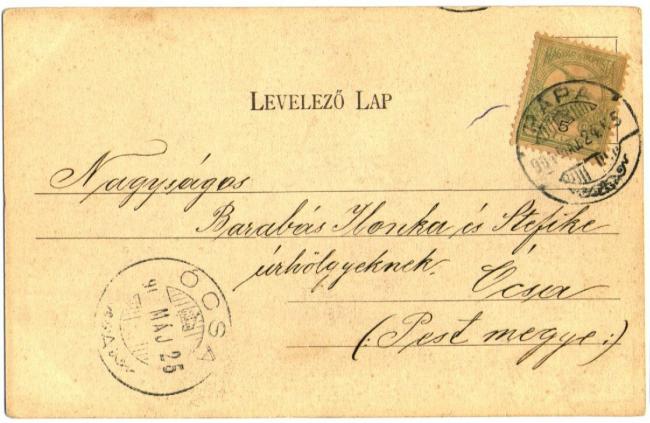 LEVELEZŐ LAP
PÁPA
Nagyságos
Barabás Ilonka és Stefike
úrhölgyeknek.
Ócsa
(: Pest megye :)
ÓCSA
MÁJ 25